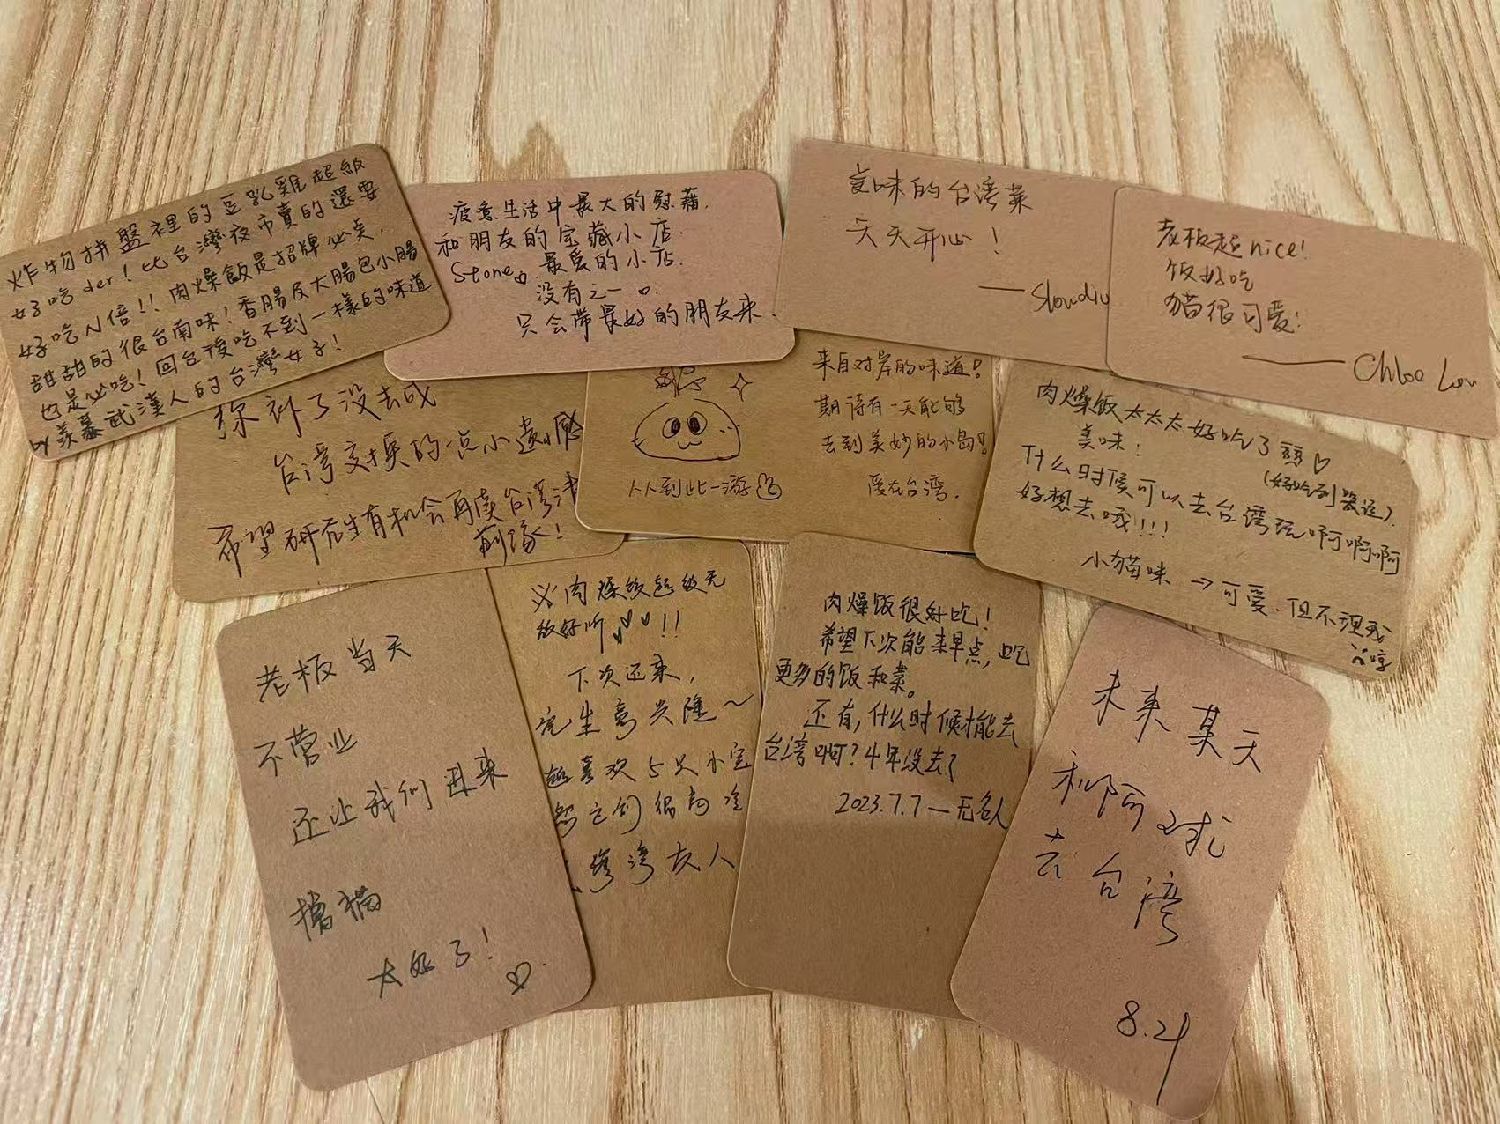 炸物拼盤裡的豆乳雞超級
好吃der！比台灣夜市賣的還要
好吃N倍!! 肉燥飯是招牌必卖，
甜甜的很台南味！香腸及大腸包小腸
也是必吃！回台後吃不到一樣的味道
by 羡慕武漢人的台灣女子！
疲惫生活中最大的慰藉，
和朋友的宝藏小店
Stone。最爱的小店.
没有之一。
只会带最好的朋友来.
美味的台湾菜
天天开心！
老板超nice!
饭好吃
猫很可爱!
—— Chloe
弥补了没去成
台湾交换的一点小遗憾
希望研究生有机会再续台湾
前缘！
来自对岸的味道！
期待有一天能够
去到美妙的小岛！
人人到此一游
肉燥饭太太太好吃了
美味！
(好吃到
什么时候可以去台湾玩啊啊啊
好想去哦!!!
小猫咪 → 可爱 但不理我
哼
老板当天
不营业
还让我们进来
撸猫
太好了！
肉燥 超级无
下次还来，
兴隆～
喜欢5只小
湾湾友人
肉燥饭很好吃！
希望下次能来早点，吃
更多的饭和菜。
还有，什么时候才能去
台湾啊？4年没去了
2023.7.7 — 无名人
未来某天
和阿球
去台湾
8.21